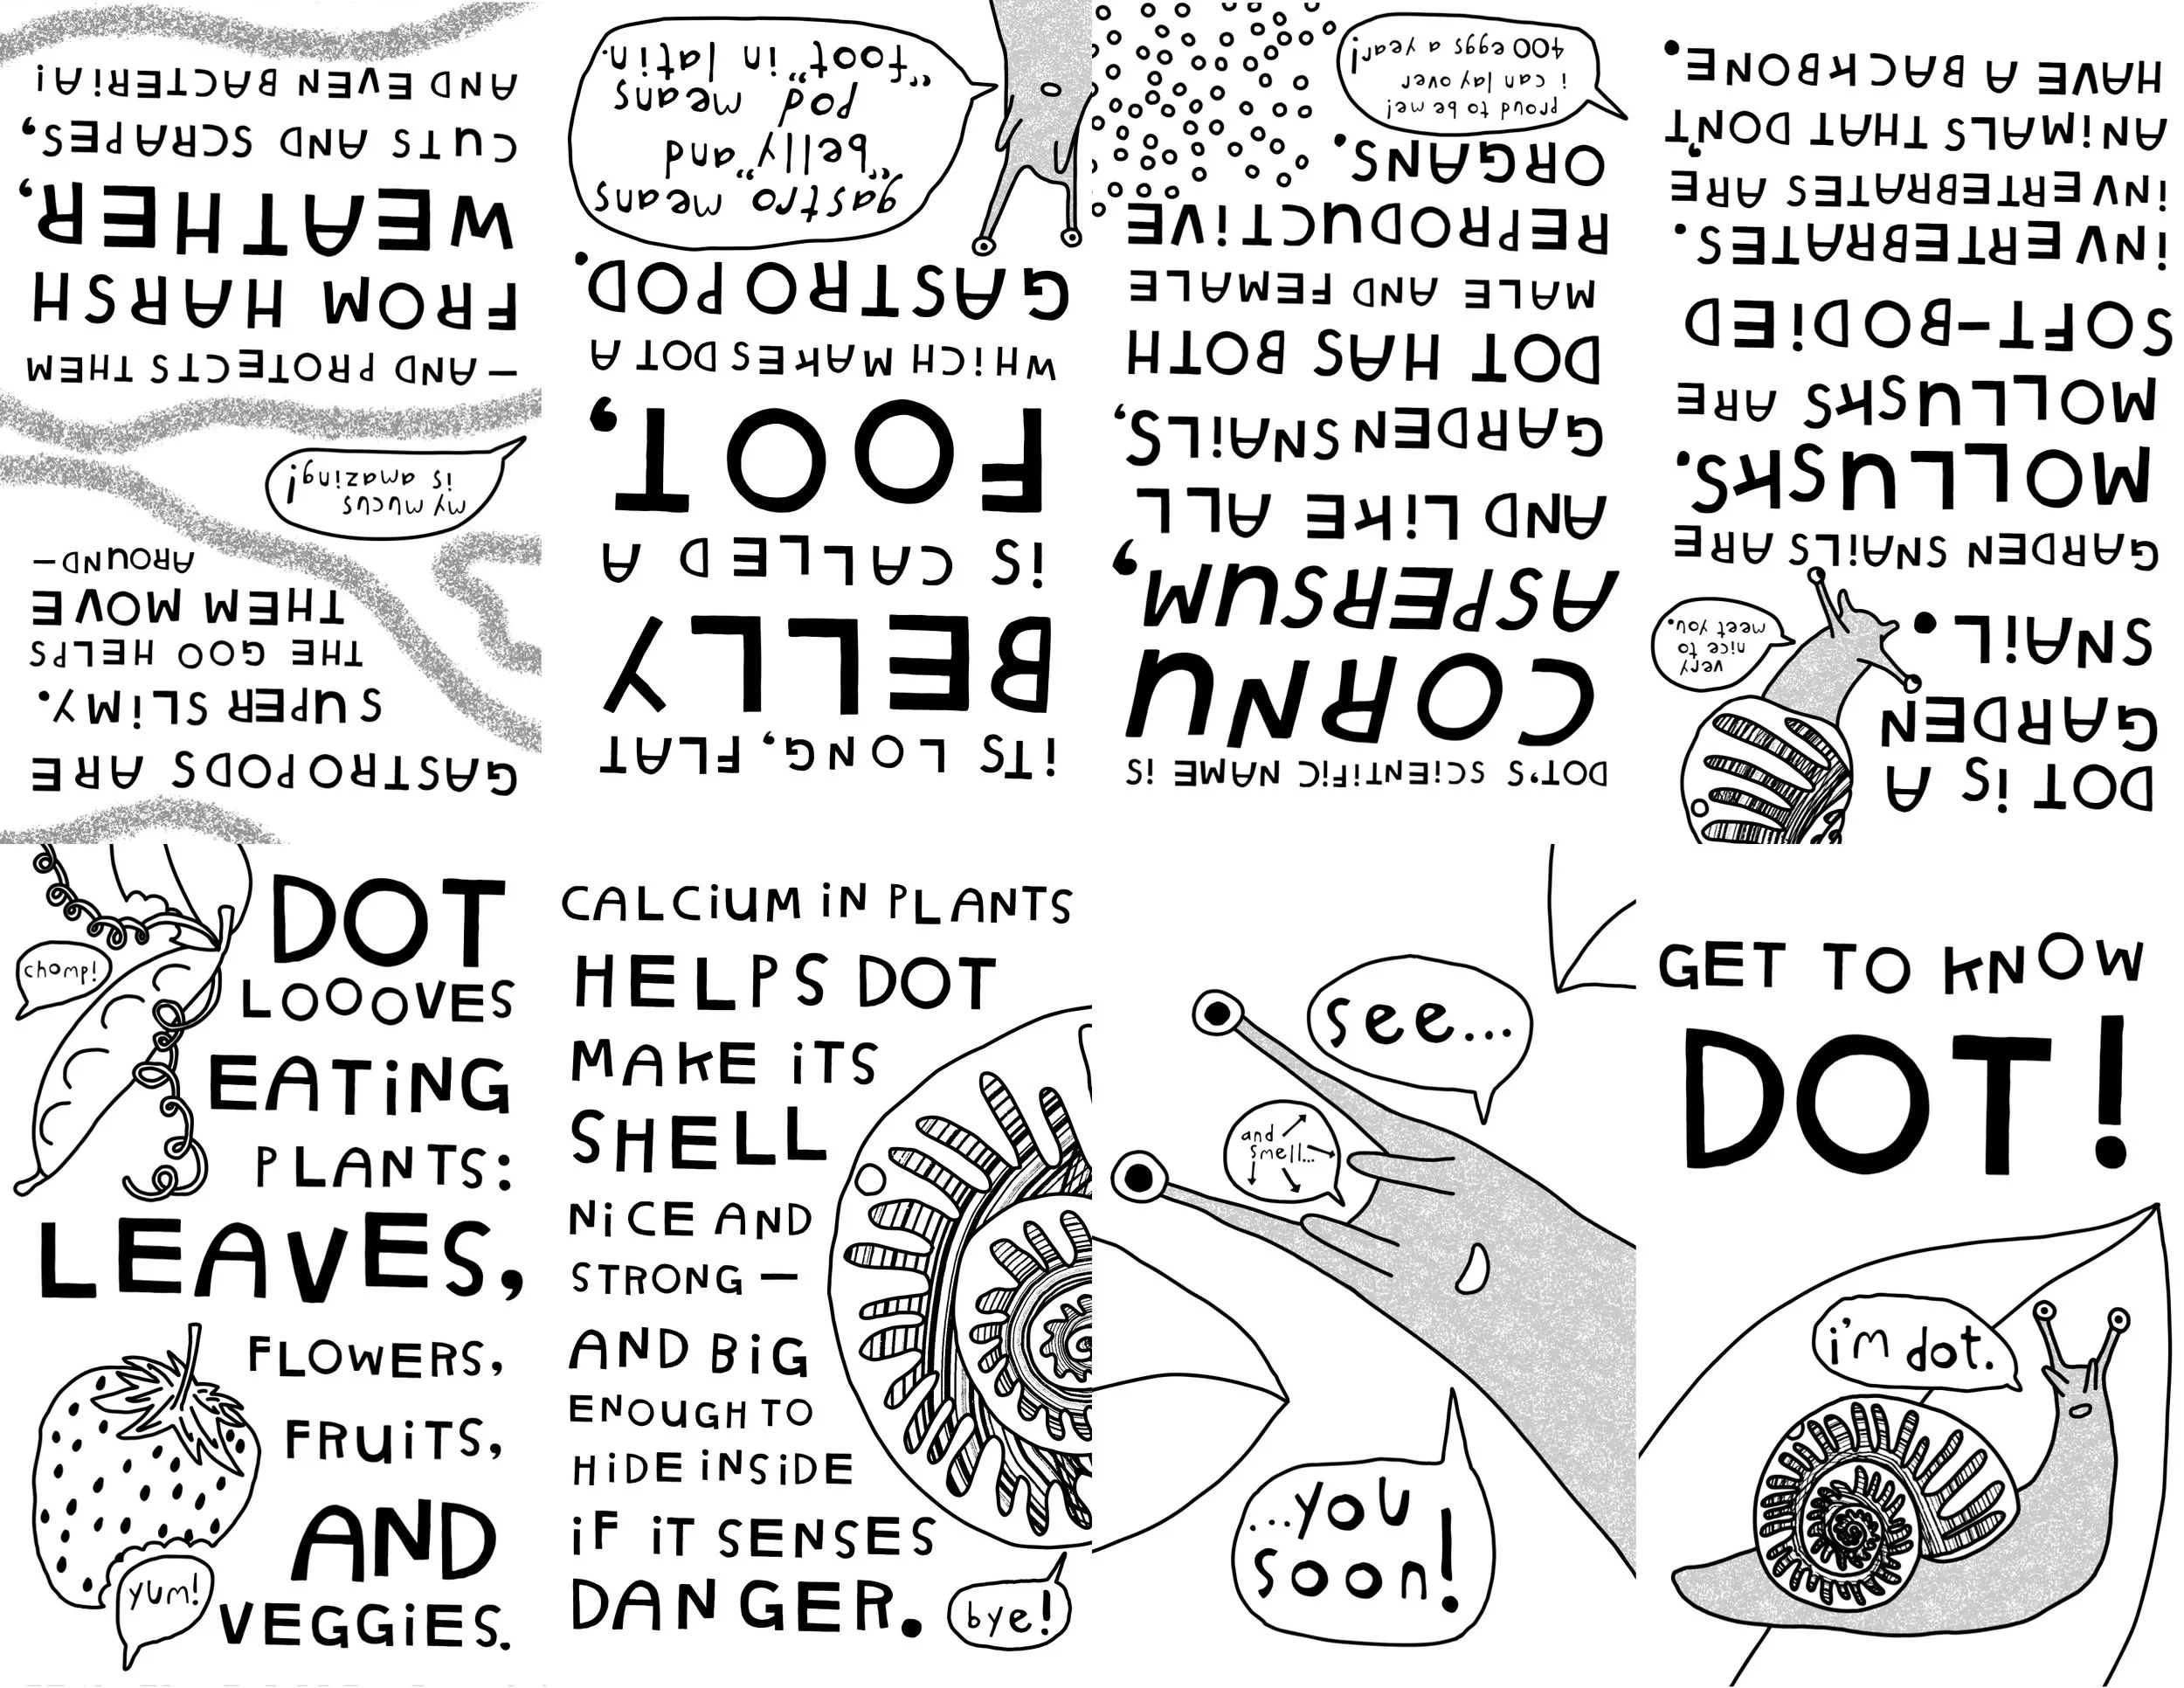 GET TO KNOW
DOT!
i'm dot.
DOT IS A
GARDEN
SNAIL.
very
nice to
meet you.
GARDEN SNAILS ARE
MOLLUSKS.
MOLLUSKS ARE
SOFT-BODIED
INVERTEBRATES.
INVERTEBRATES ARE
ANIMALS THAT DON'T
HAVE A BACKBONE.
DOT'S SCIENTIFIC NAME IS
CORNU
ASPERSUM,
AND LIKE ALL
GARDEN SNAILS,
DOT HAS BOTH
MALE AND FEMALE
REPRODUCTIVE
ORGANS.
proud to be me!
i can lay over
400 eggs a year!
ITS LONG, FLAT
BELLY
IS CALLED A
FOOT,
WHICH MAKES DOT A
GASTROPOD.
gastro means
"belly" and
pod means
"foot" in latin.
GASTROPODS ARE
SUPER SLIMY.
THE GOO HELPS
THEM MOVE
AROUND—
my mucus
is amazing!
—AND PROTECTS THEM
FROM HARSH
WEATHER,
CUTS AND SCRAPES,
AND EVEN BACTERIA!
DOT
LOOOVES
chomp!
EATING
PLANTS:
LEAVES,
FLOWERS,
FRUITS,
AND
yum!
VEGGIES.
CALCIUM IN PLANTS
HELPS DOT
MAKE ITS
SHELL
NICE AND
STRONG —
AND BIG
ENOUGH TO
HIDE INSIDE
IF IT SENSES
DANGER.
bye!
see...
and
smell...
...you
soon!